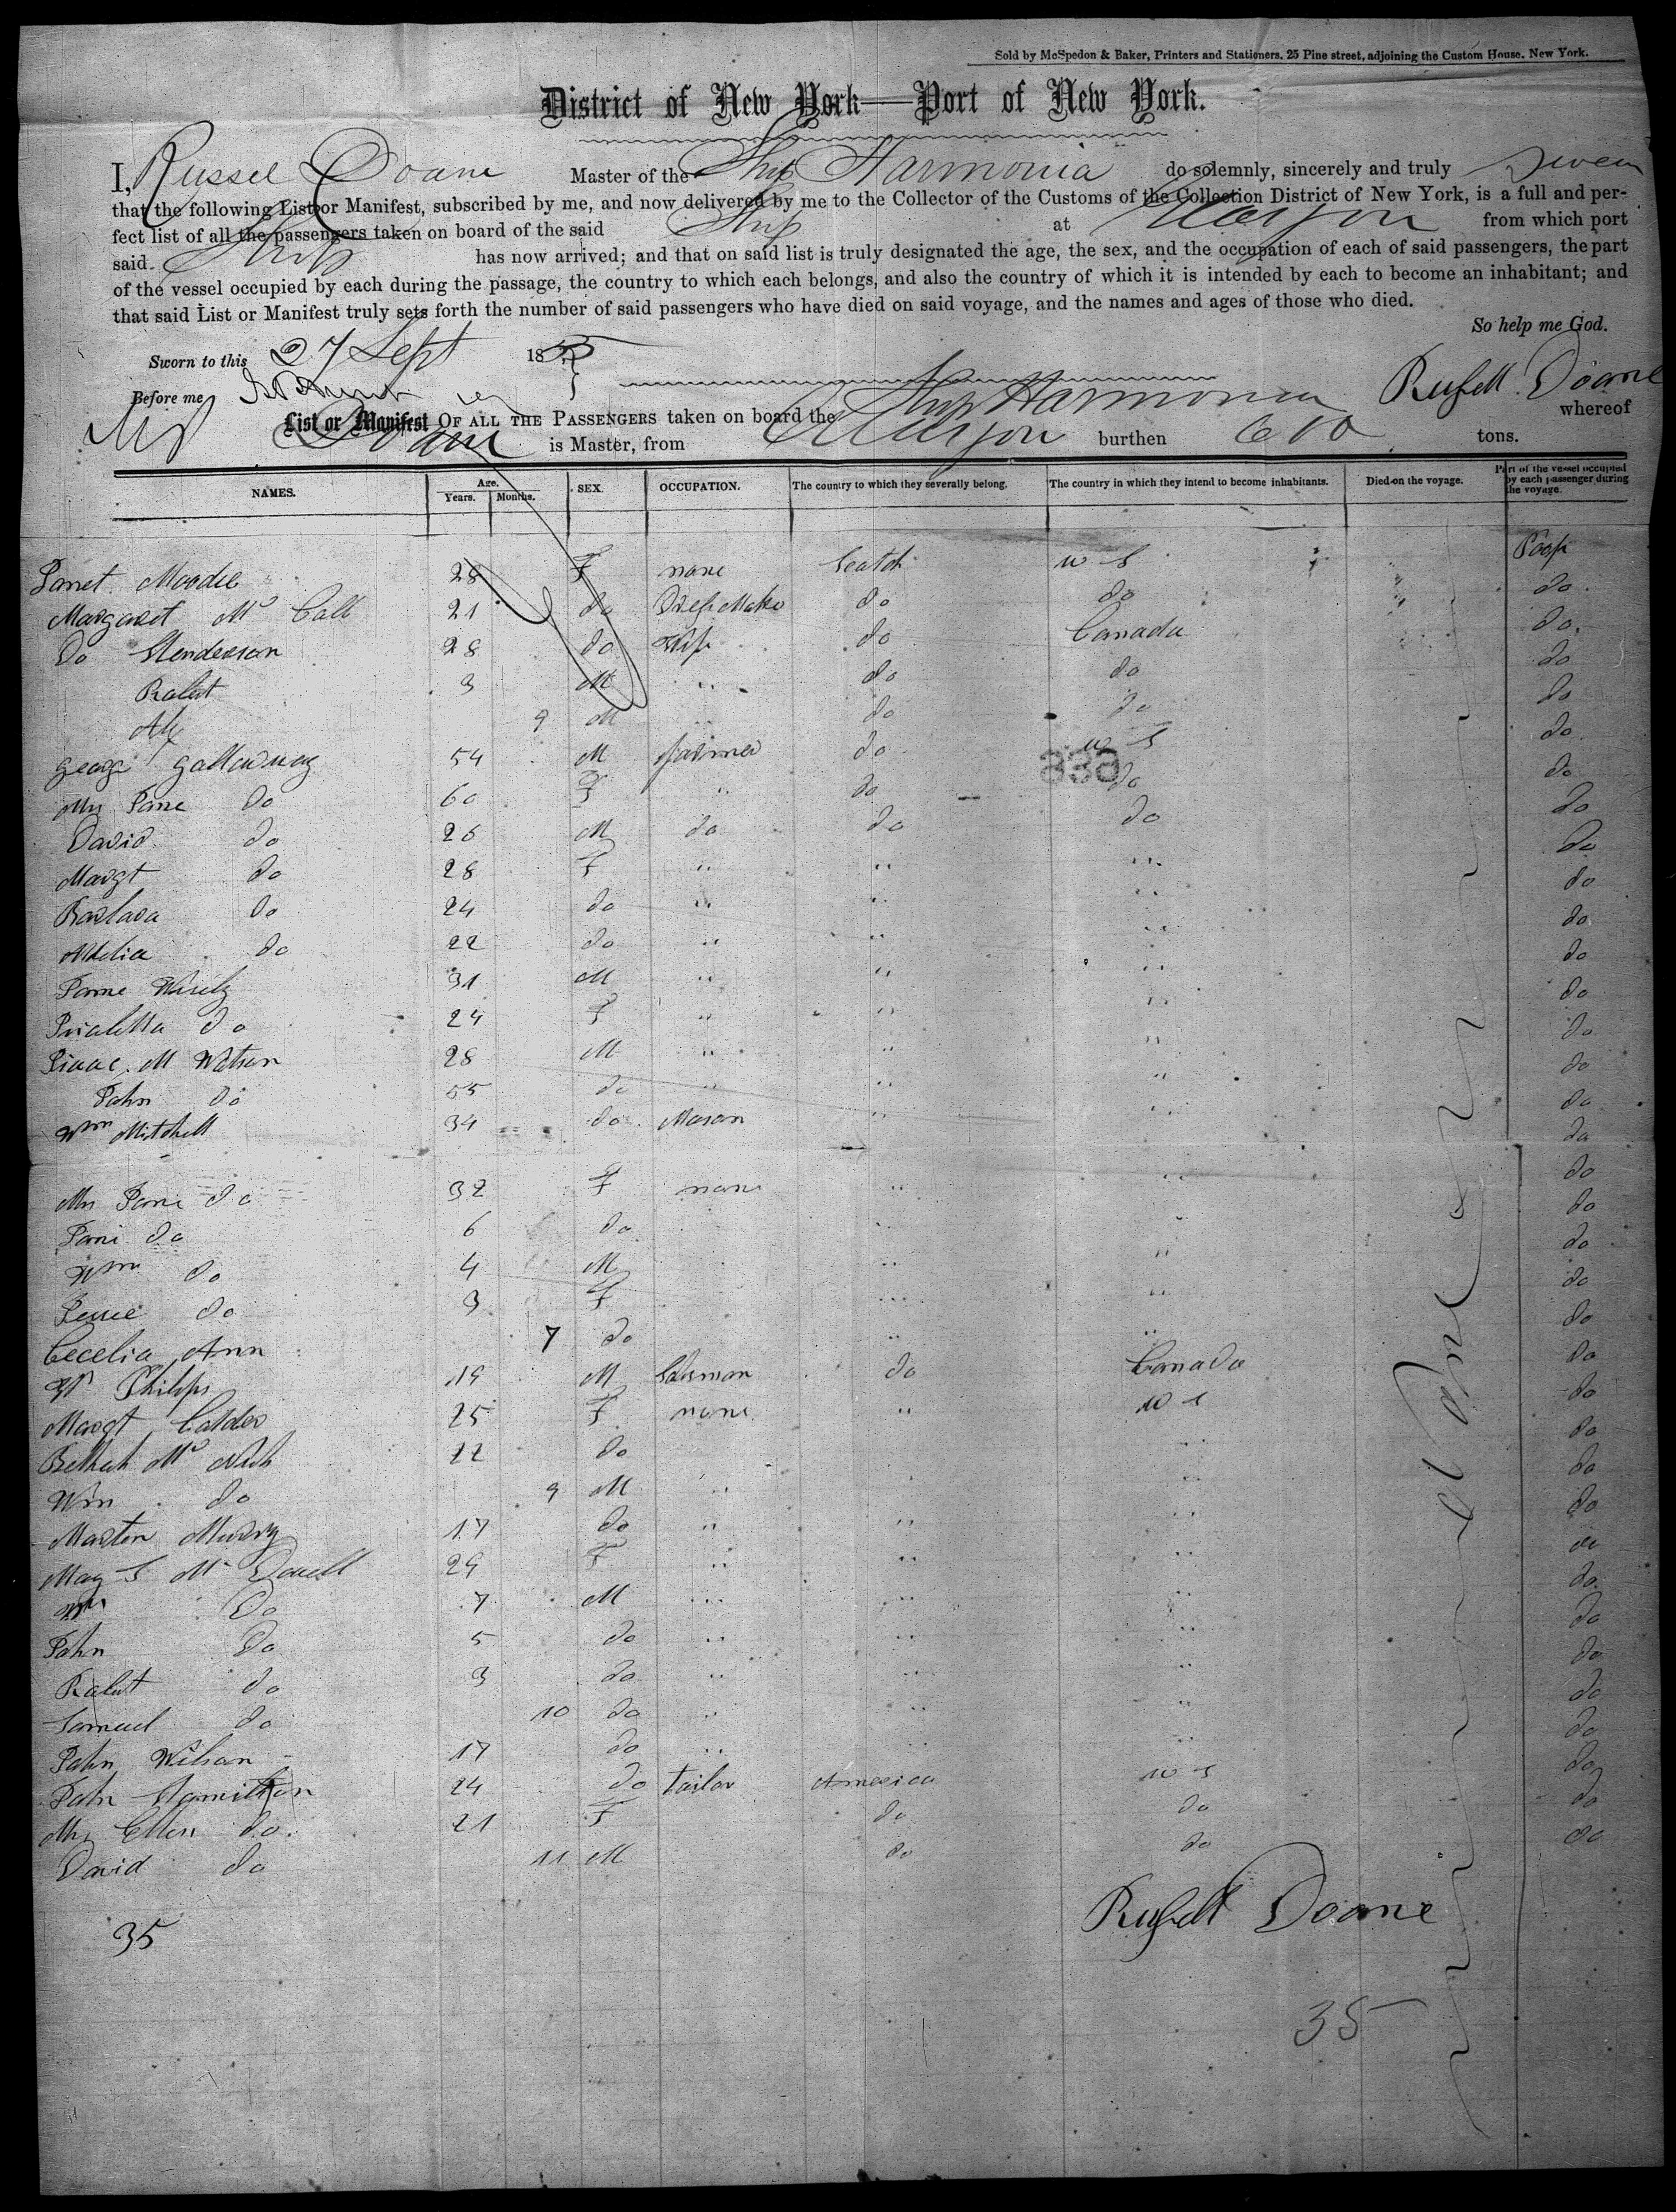 Sold by McSpedon & Baker, Printers and Stationers, 25 Pine street, adjoining the Custom House, New York.
District of New York—Port of New York.
I, Russel Doane Master of the Ship Harmonia do solemnly, sincerely and truly swear
that the following List or Manifest, subscribed by me, and now delivered by me to the Collector of the Customs of the Collection District of New York, is a full and per-
fect list of all the passengers taken on board of the said Ship at Glasgow from which port
said Ship has now arrived; and that on said list is truly designated the age, the sex, and the occupation of each of said passengers, the part
of the vessel occupied by each during the passage, the country to which each belongs, and also the country of which it is intended by each to become an inhabitant; and
that said List or Manifest truly sets forth the number of said passengers who have died on said voyage, and the names and ages of those who died.
So help me God.
Sworn to this 27 Sept 185
Before me Russell Doane
List or Manifest OF ALL THE PASSENGERS taken on board the Ship Harmonia whereof
Doane is Master, from Glasgow burthen 600 tons.
NAMES. Age. Years. Months. SEX. OCCUPATION. The country to which they severally belong. The country in which they intend to become inhabitants. Died on the voyage. Part of the vessel occupied by each passenger during the voyage.
Janet Moodie 28 F none Scotch U S Poop
Margaret Mc Call 21 do Dress Maker do do do
Do Henderson 28 do Wife do Canada do
Robert 3 M " do do do
Alex 9 M " do do do
George Galloway 54 M farmer do U S do
Mrs Jane do 60 F " do do do
David do 26 M do do do do
Margt do 28 F " " " do
Barbara do 24 do " " " do
do 22 do " " " do
31 M " " " do
do 24 F " " " do
Isaac M Watson 28 M " " " do
John do 55 do " " " do
Wm Mitchell 34 do Mason " " do
Mrs Jane do 32 F none " " do
Jane do 6 do " " do
Wm do 4 M " " do
Jessie do 3 F " " do
Cecelia Ann 7 do " " do
Philips 19 M do Canada do
Margt Calder 25 F none " U S do
Mc 22 do " do
Wm do 9 M " " " do
Marten Murry 17 do " " " do
29 F " " " do
Wm Do 7 M " " " do
John Do 5 do " " " do
Robert do 3 do " " " do
Samuel do 10 do " " " do
John Wilson 17 do " " " do
John Hamilton 24 do Tailor America U S do
Mrs Ellen do 21 F do do do
David do 11 M do do do
Russell Doane
35
35